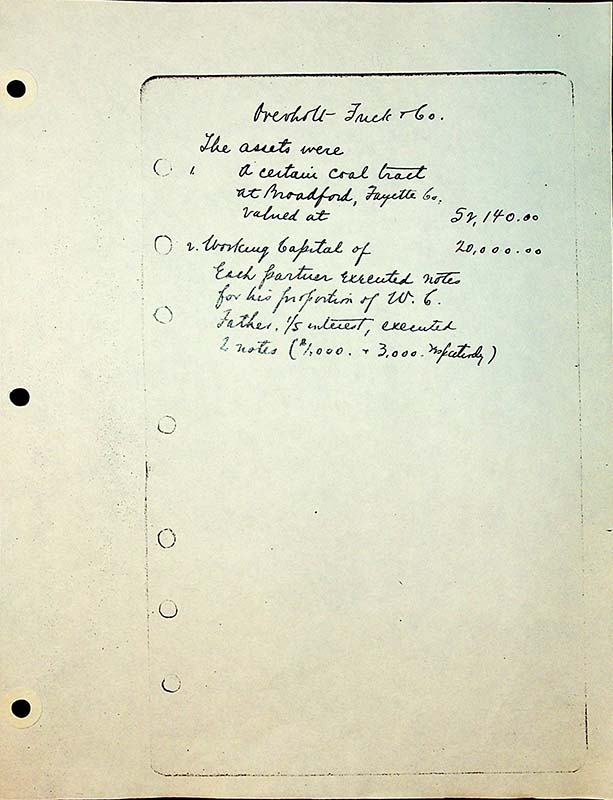 Overholt Frick + Co.
The assets were
1. A certain coal tract
at Broadford, Fayette Co.
valued at 52,140.00
2. Working Capital of 20,000.00
Each partner executed notes
for his proportion of W. C.
Father, 1/5 interest, executed
2 notes ($1,000. + 3,000. respectively)